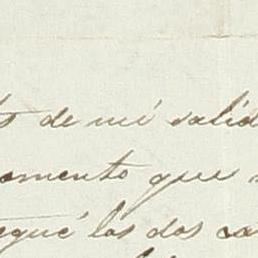 de mi salid
omento que
egué los dos ca